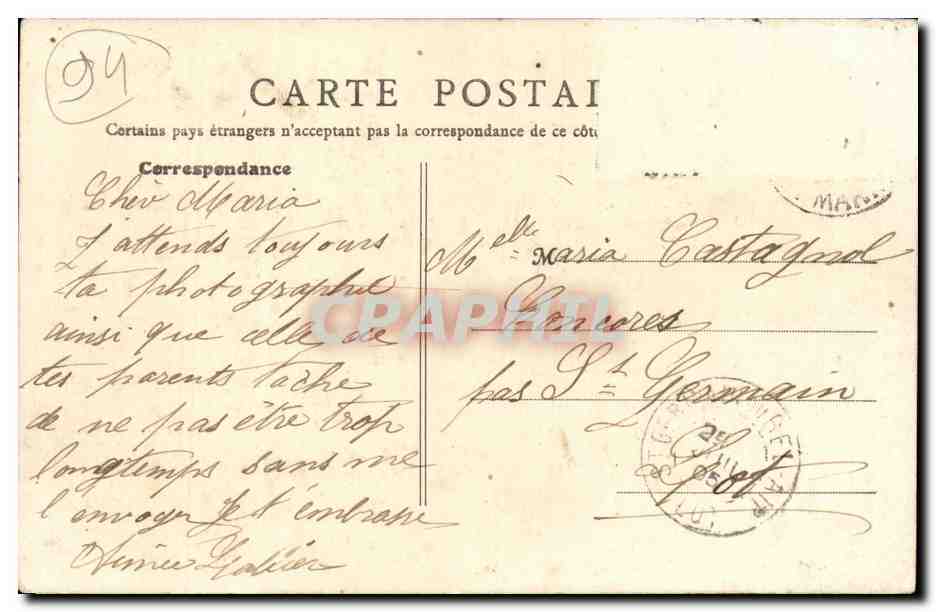 94
CARTE POSTAL
Certains pays étrangers n'acceptent pas la correspondance de ce côté
Correspondance
Chèr Maria
J'attends toujours
ta photographie
ainsi que celle de
tes parents tâche
de ne pas être trop
longtemps sans me
l'envoyer Je t'embrasse
Aimée
Melle Maria Castagnol
Concorès
par St Germain
Lot
MAN
ST GERMAIN-DU-BEL-AIR
25
05
LOT
CPAPHIL